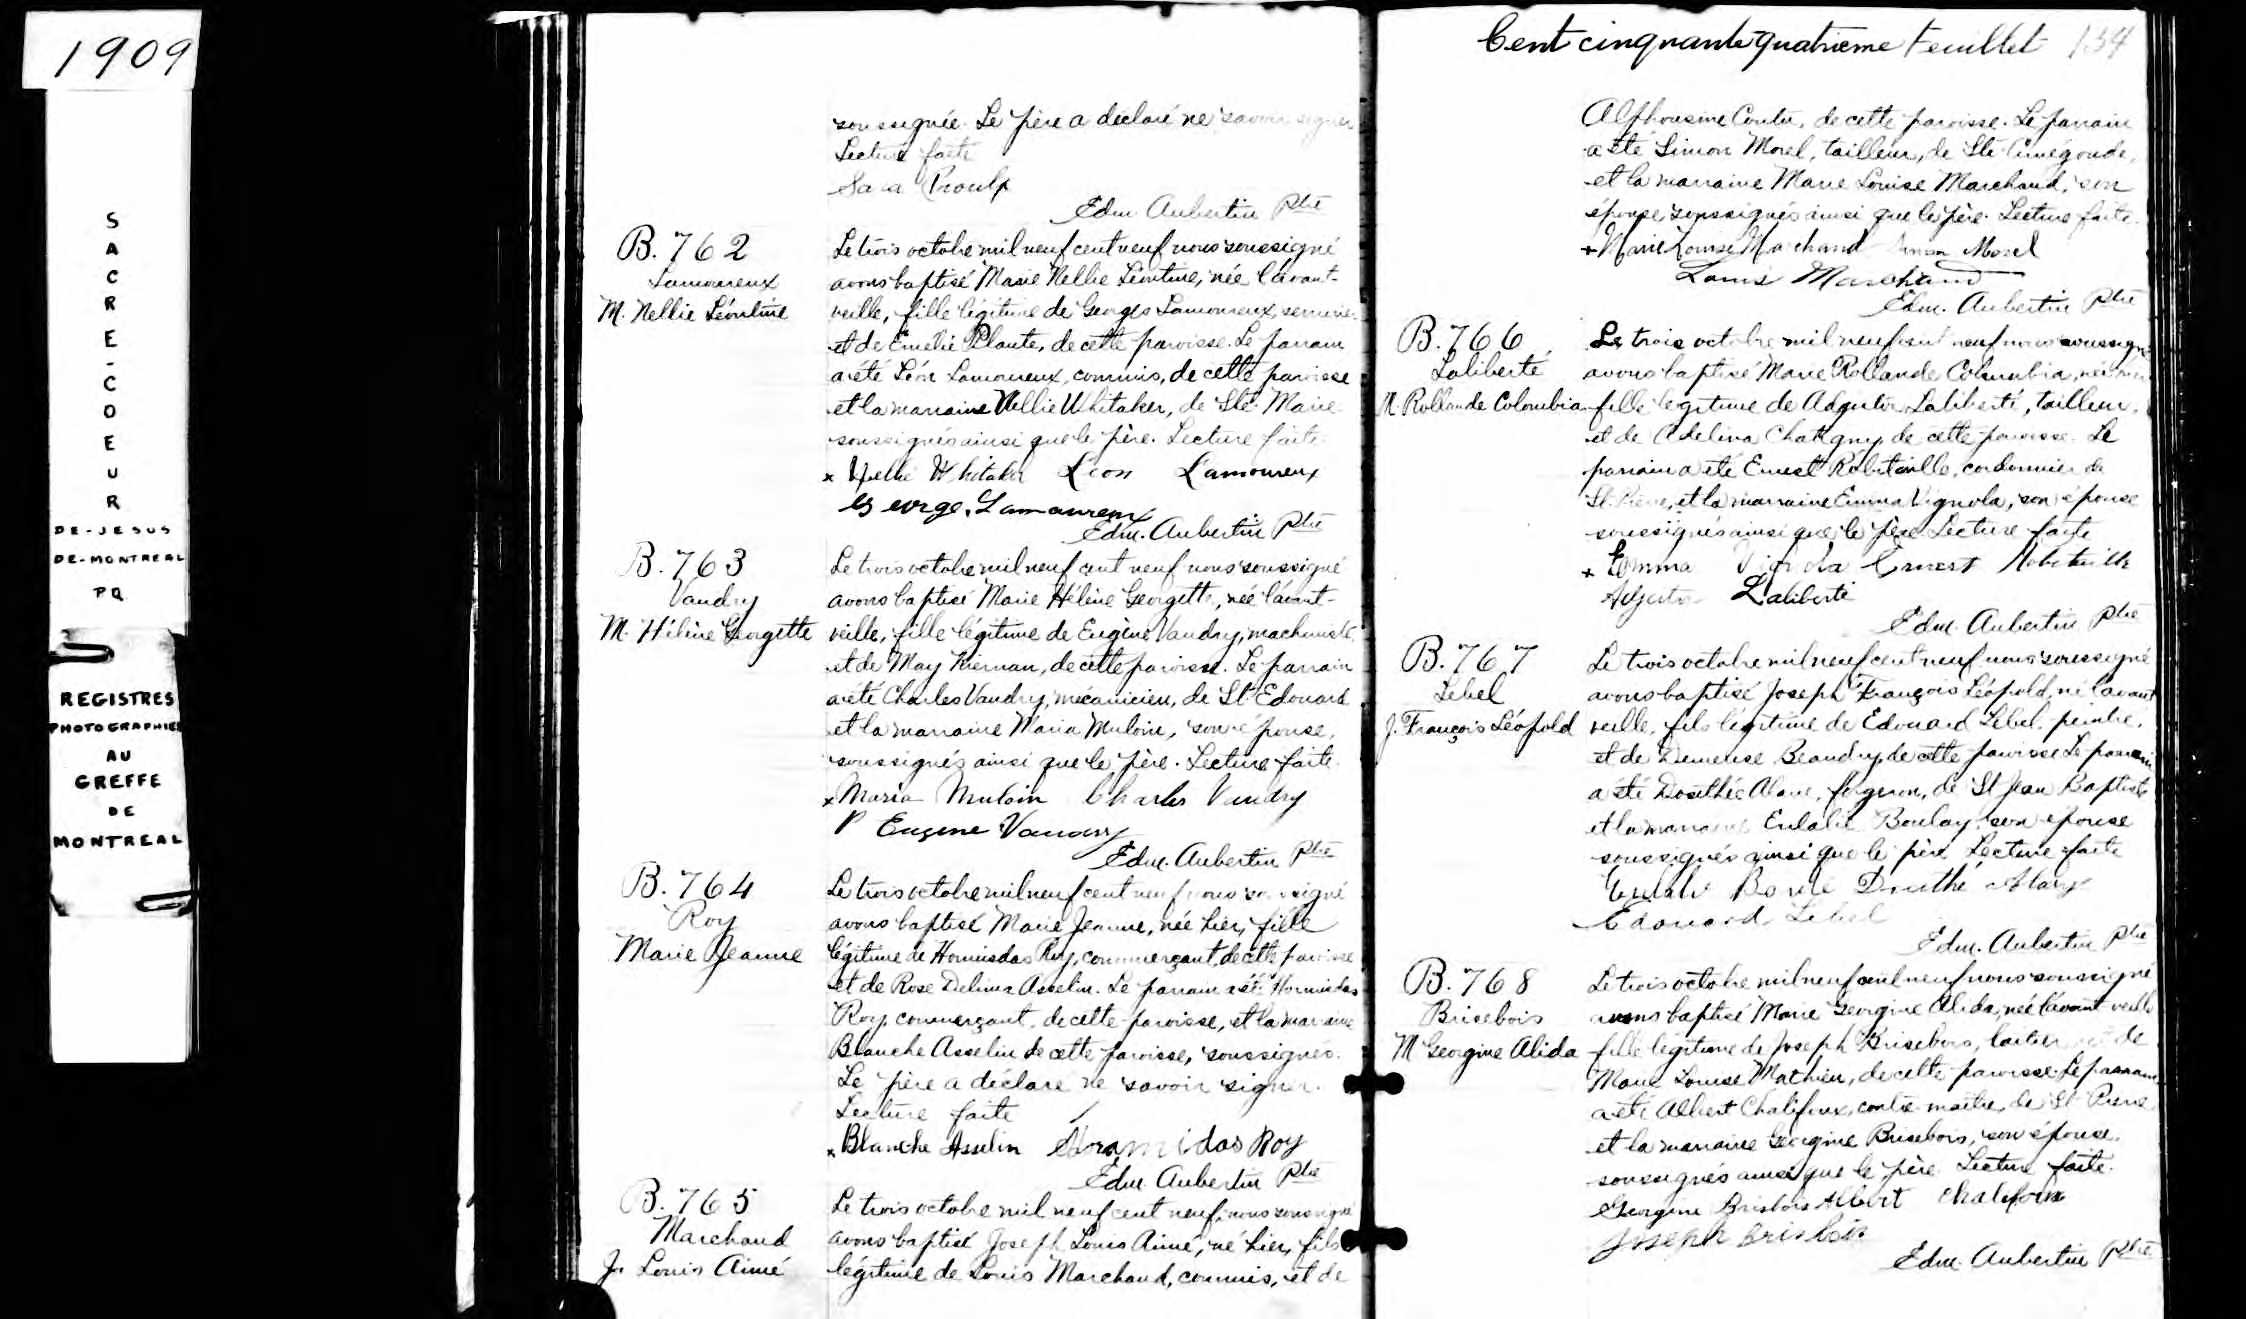 1909
SACRE-COEUR
DE-JESUS
DE-MONTREAL
PQ
REGISTRES
PHOTOGRAPHIES
AU
GREFFE
DE
MONTREAL
soussignée. Le père a déclaré ne savoir signer
Lecture faite
Sara Proulx
Edm. Aubertin Ptre
B. 762
Lamoureux
M. Nellie Léontine
Le trois octobre mil neuf cent neuf nous soussigné
avons baptisé Marie Nellie Léontine, née l'avant-
veille, fille légitime de Georges Lamoureux,
et de Emélie Plante, de cette paroisse. Le parrain
a été Léon Lamoureux, commis, de cette paroisse
et la marraine Nellie Whitaker, de Ste Marie
soussignés ainsi que le père. Lecture faite.
x Nellie Whitaker Léon Lamoureux
George Lamoureux
Edm. Aubertin Ptre
B. 763
Vaudry
M. Hélène Georgette
Le trois octobre mil neuf cent neuf nous soussigné
avons baptisé Marie Hélène Georgette, née l'avant-
veille, fille légitime de Eugène Vaudry, machiniste,
et de May Kiernan, de cette paroisse. Le parrain
a été Charles Vaudry, mécanicien, de St Edouard
et la marraine Maria Muloin, son épouse,
soussignés ainsi que le père. Lecture faite.
x Maria Muloin Charles Vaudry
P Eugene Vaudry
Edm. Aubertin Ptre
B. 764
Roy
Marie Jeanne
Le trois octobre mil neuf cent neuf nous soussigné
avons baptisé Marie Jeanne, née hier, fille
légitime de Hormisdas Roy, commerçant, de cette paroisse
et de Rose Delima Asselin. Le parrain a été Hormisdas
Roy, commerçant, de cette paroisse, et la marraine
Blanche Asselin de cette paroisse, soussignés.
Le père a déclaré ne savoir signer.
Lecture faite
x Blanche Asselin Horamidas Roy
Edm. Aubertin Ptre
B. 765
Marchand
Js Louis Aimé
Le trois octobre mil neuf cent neuf, nous soussigné
avons baptisé Joseph Louis Aimé, né hier, fils
légitime de Louis Marchand, commis, et de
Cent cinquante-quatrième feuillet 154
Alphonsine Coutu, de cette paroisse. Le parrain
a été Simon Morel, tailleur, de Ste Cunégonde,
et la marraine Marie Louise Marchand, son
épouse, soussignés ainsi que le père. Lecture faite.
+ Marie Louise Marchand Simon Morel
Louis Marchand
Edm. Aubertin Ptre
B. 766
Laliberté
M. Rollande Colombia
Le trois octobre mil neuf cent neuf nous soussigné
avons baptisé Marie Rollande Columbia, née hier
fille légitime de Adjutor Laliberté, tailleur,
et de Adelina Chatigny, de cette paroisse. Le
parrain a été Ernest Robitaille, cordonnier de
St Pierre, et la marraine Emma Vignola, son épouse
soussignés ainsi que le père. Lecture faite
x Emma Vignola Ernest Robitaille
Adjutor Laliberté
Edm. Aubertin Ptre
B. 767
Lebel
J. François Léopold
Le trois octobre mil neuf cent neuf nous soussigné
avons baptisé Joseph François Léopold, né l'avant
veille, fils légitime de Edouard Lebel, peintre,
et de Demerise Beaudry, de cette paroisse. Le parrain
a été Dosithée Alarie, forgeron, de St Jean Baptiste
et la marraine Eulalie Boulay, son épouse
soussignés ainsi que le père Lecture faite
Edouard Lebel
Edm. Aubertin Ptre
B. 768
Brisebois
M Georgine Alida
Le trois octobre mil neuf cent neuf nous soussigné
avons baptisé Marie Georgine Alida, née l'avant veille
fille légitime de Joseph Brisebois, laitier et de
Marie Louise Mathieu, de cette paroisse. Le parrain
a été Albert Chalifoux, contre-maitre, de St Pierre
et la marraine Georgine Brisebois, son épouse,
soussignés ainsi que le père. Lecture faite.
Georgine Brisbois Albert Chalifoux
Joseph Brisbois
Edm. Aubertin Ptre